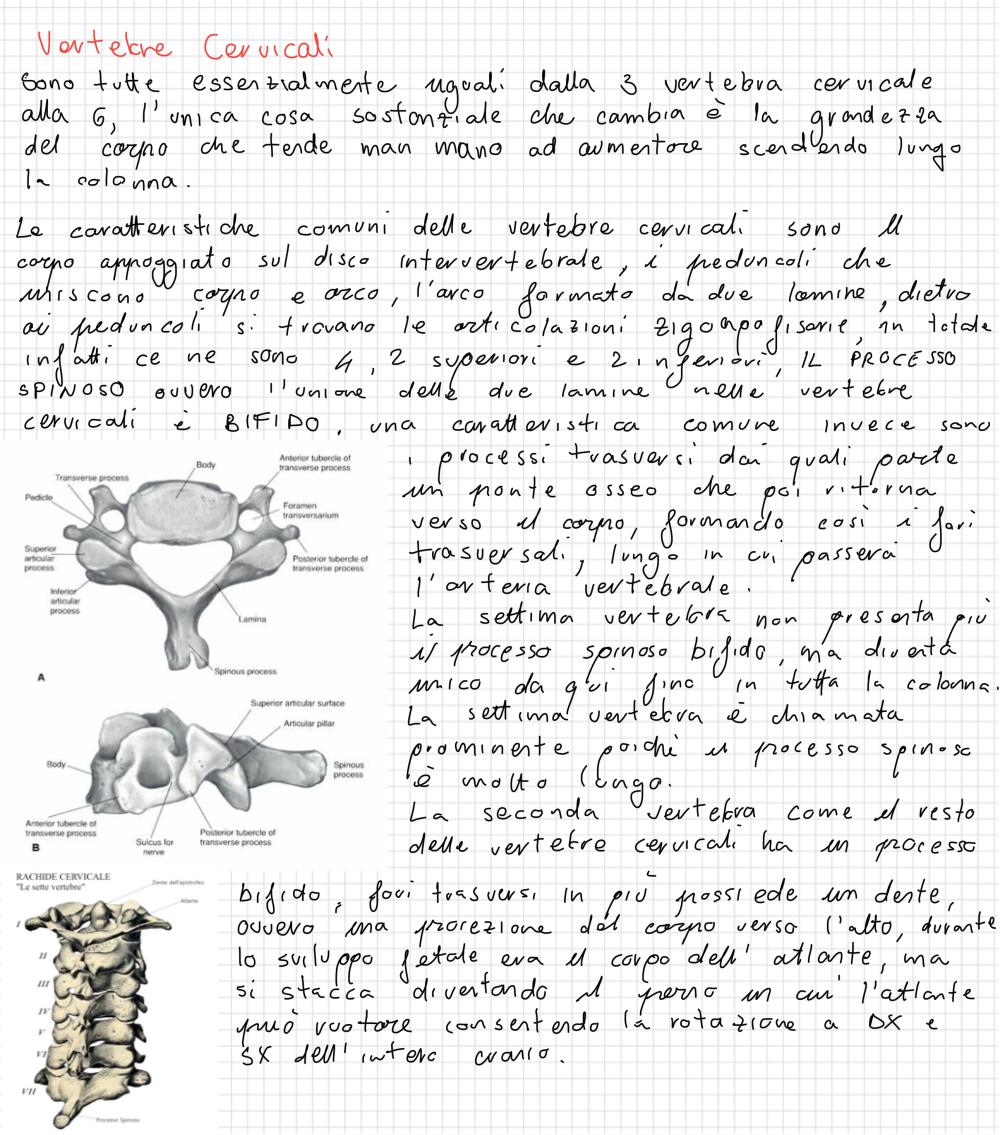 Vertebre Cervicali
sono tutte essenzialmente uguali dalla 3 vertebra cervicale
alla 6, l'unica cosa sostanziale che cambia è la grandezza
del corpo che tende man mano ad aumentare scendendo lungo
la colonna.
Le caratteristiche comuni delle vertebre cervicali sono il
corpo appoggiato sul disco intervertebrale, i peduncoli che
uniscono corpo e arco, l'arco formato da due lamine, dietro
ai peduncoli si trovano le articolazioni zigoapofisarie, in totale
infatti ce ne sono 4, 2 superiori e 2 inferiori, IL PROCESSO
SPINOSO ovvero l'unione delle due lamine nelle vertebre
cervicali è BIFIDO, una caratteristica comune invece sono
i processi trasversi dai quali parte
un ponte osseo che poi ritorna
verso il corpo, formando così i fori
trasversali, luogo in cui passerà
l'arteria vertebrale.
La settima vertebra non presenta più
il processo spinoso bifido, ma diventa
unico da qui fino in tutta la colonna.
La settima vertebra è chiamata
prominente poiché il processo spinoso
è molto lungo.
La seconda vertebra come il resto
delle vertebre cervicali ha un processo
bifido, fori trasversi in più possiede un dente,
ovvero una proiezione del corpo verso l'alto, durante
lo sviluppo fetale era il corpo dell'atlante, ma
si stacca diventando il perno in cui l'atlante
può ruotare consentendo la rotazione a DX e
SX dell'intero cranio.
Body
Anterior tubercle of
transverse process
Transverse process
Pedicle
Foramen
transversarium
Superior
articular
process
Posterior tubercle of
transverse process
Inferior
articular
process
Lamina
Spinous process
A
Superior articular surface
Articular pillar
Body
Spinous
process
Anterior tubercle of
transverse process
Sulcus for
nerve
Posterior tubercle of
transverse process
B
RACHIDE CERVICALE
"Le sette vertebre"
Dente dell'epistrofeo
Atlante
I
II
III
IV
V
VI
VII
Processo Spinoso